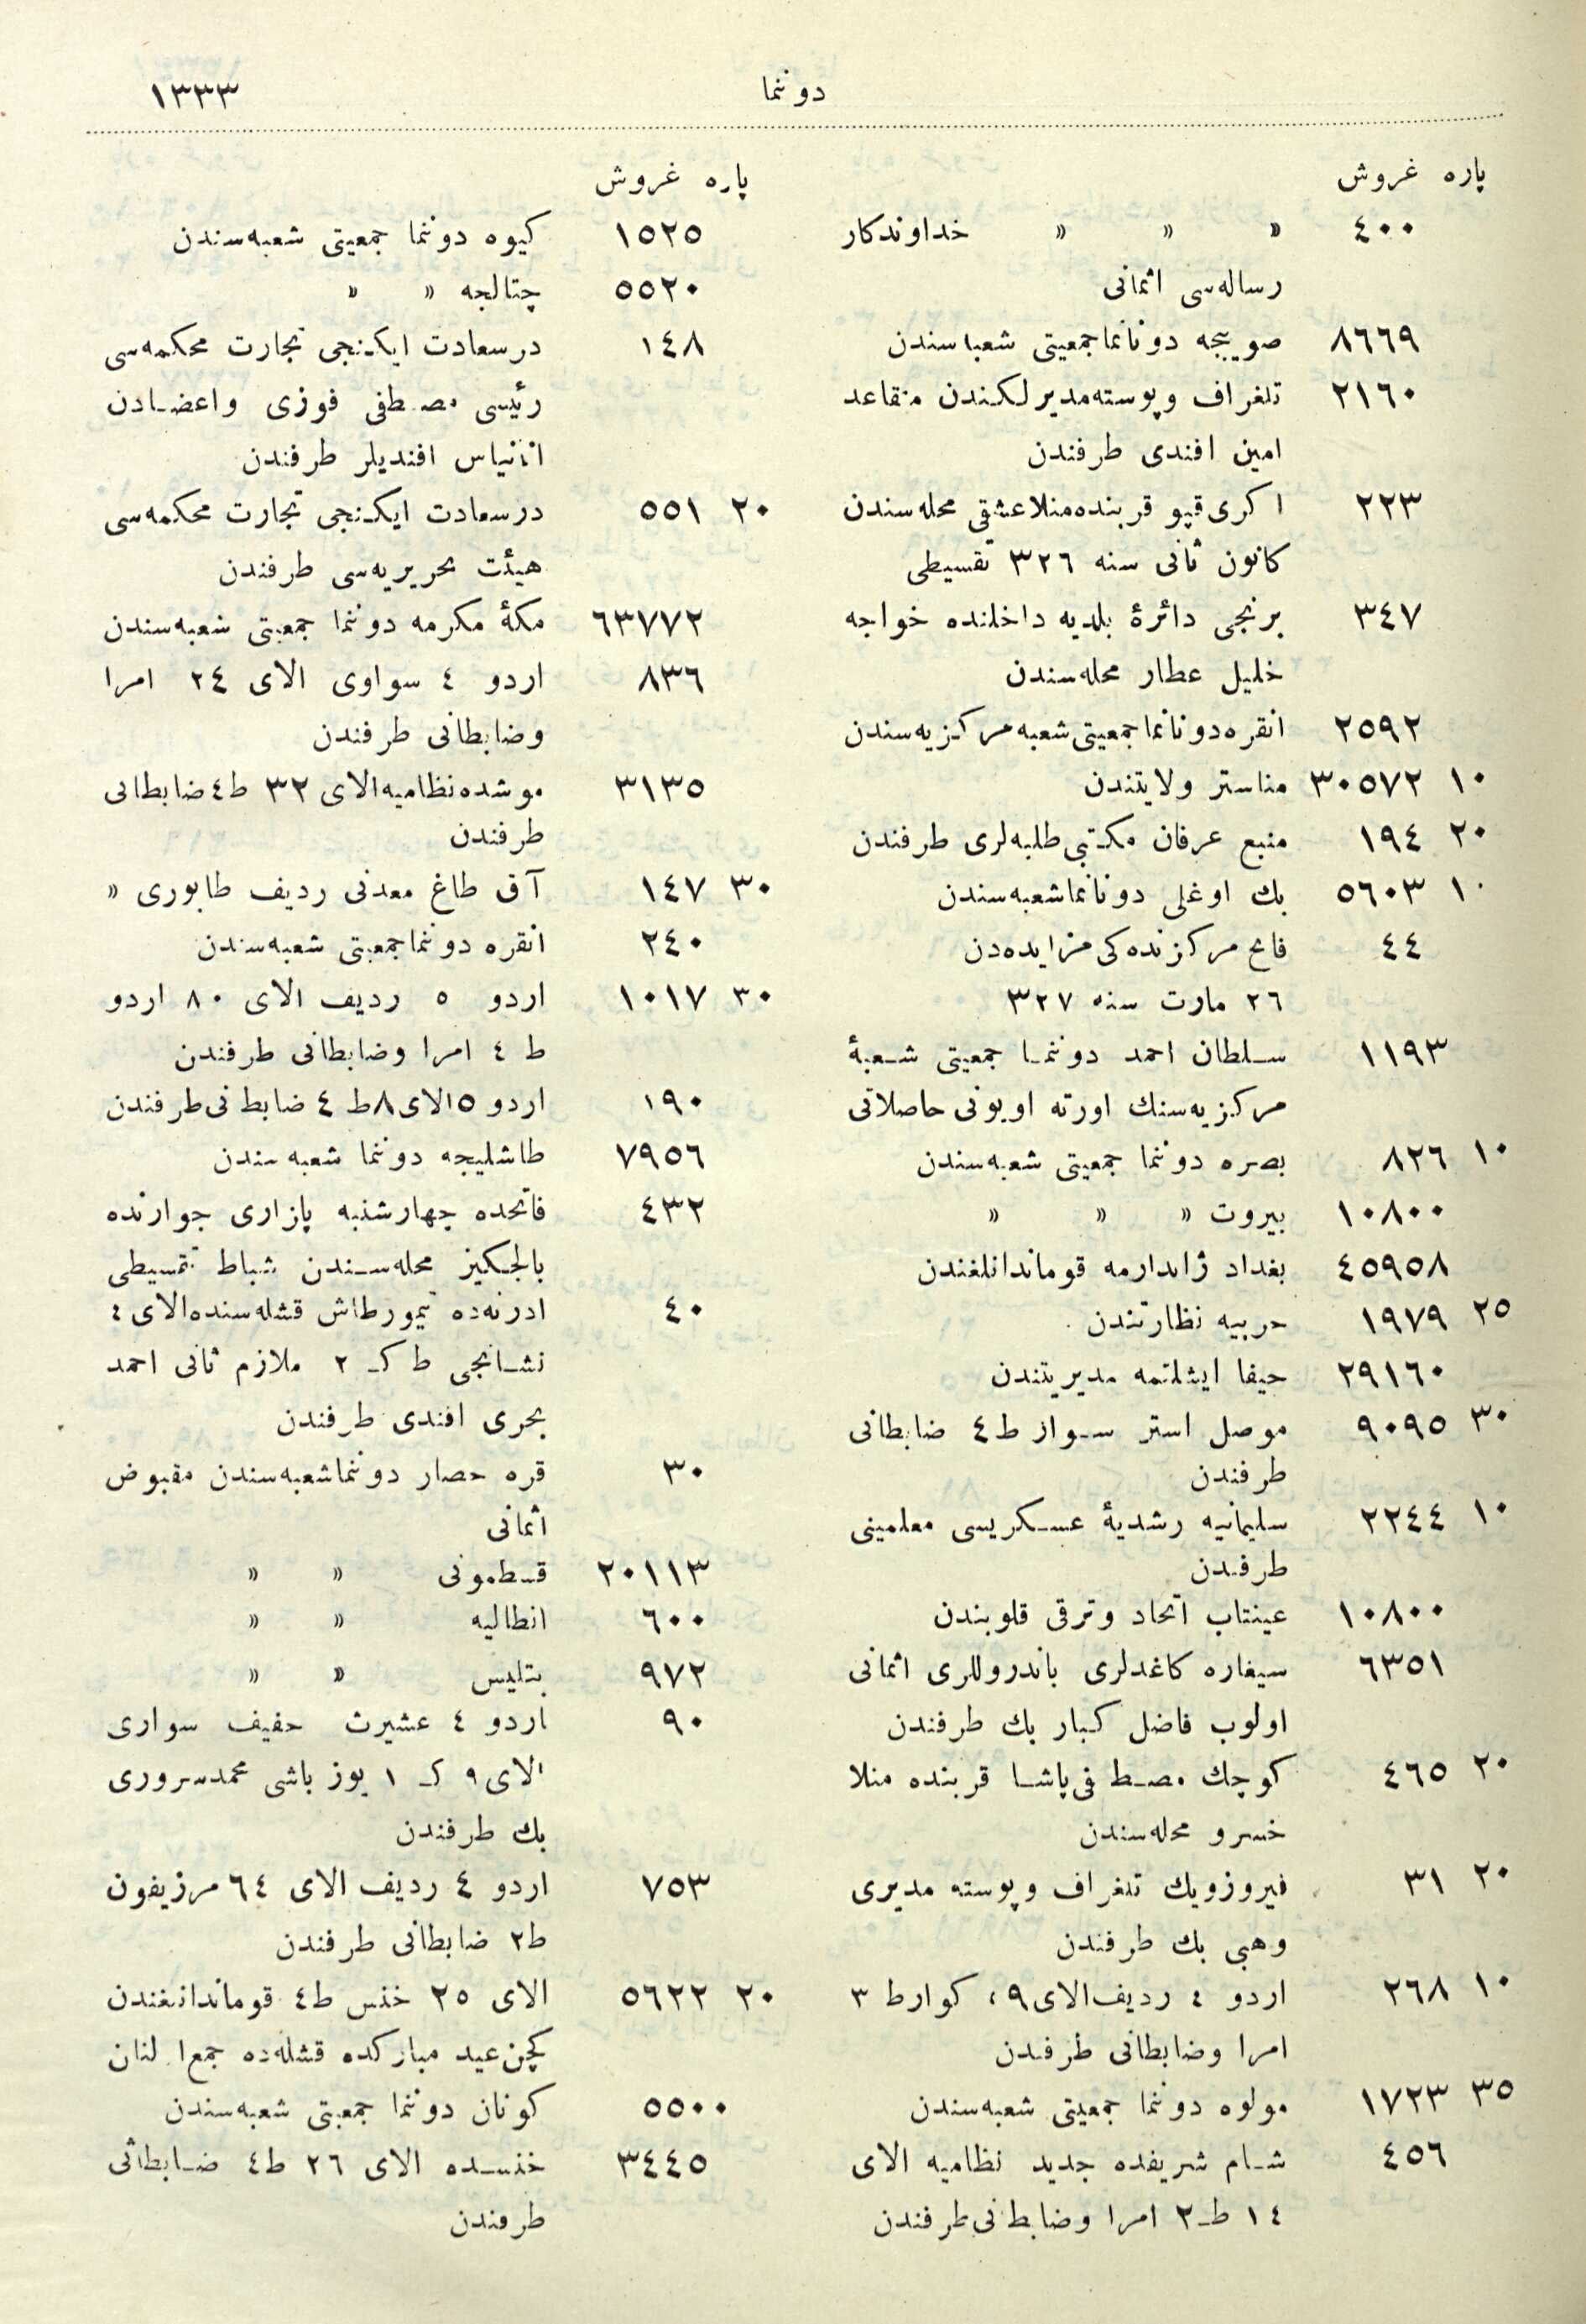 ١٣٣٣
دوننما
پاره غروش
٤٠٠ » » » خداوندکار
رساله‌سی اثمانی
٨٦٦٩ صویبجه دونانما جمعیتی شعبه‌سندن
٢١٦٠ تلغراف وپوسته مدیرلکندن متقاعد
امین افندی طرفندن
٢٢٣ اکری قپو قربنده منلاعشقی محله‌سندن
کانون ثانی سنه ٣٢٦ تقسیطی
٣٤٧ برنجی دائرۀ بلدیه داخلنده خواجه
خلیل عطار محله‌سندن
٢٥٩٢ انقره دونانما جمعیتی شعبه مرکزیه‌سندن
١٠ ٣٠٥٧٢ مناستر ولایتندن
٢٠ ١٩٤ منبع عرفان مکتبی طلبه‌لری طرفندن
١٠ ٥٦٠٣ بك اوغلی دونانما شعبه‌سندن
٤٤ فاتح مرکزنده‌کی مزایده‌دن
٢٦ مارت سنه ٣٢٧
١١٩٣ سلطان احمد دوننما جمعیتی شعبۀ
مرکزیه‌سنك اورته اویونی حاصلاتی
١٠ ٨٢٦ بصره دوننما جمعیتی شعبه‌سندن
١٠٨٠٠ بیروت » » »
٤٥٩٥٨ بغداد ژاندارمه قوماندانلغندن
٢٥ ١٩٧٩ حربیه نظارتندن
٢٩١٦٠ حیفا ایشلتمه مدیریتندن
٣٠ ٩٠٩٥ موصل استر سوار ط٤ ضابطانی
طرفندن
١٠ ٢٢٤٤ سلیمانیه رشدیۀ عسکریسی معلمینی
طرفندن
١٠٨٠٠ عینتاب اتحاد وترقی قلوبندن
٦٣٥١ سیغاره کاغدلری باندروللری اثمانی
اولوب فاضل کبار بك طرفندن
٢٠ ٤٦٥ کوچك مصطفی پاشا قربنده منلا
خسرو محله‌سندن
٢٠ ٣١ فیروزویك تلغراف وپوسته مدیری
وهبی بك طرفندن
١٠ ٢٦٨ اردو ٤ ردیف الای ٩، کوارط ٣
امرا وضابطانی طرفندن
٣٥ ١٧٢٣ مولوه دوننما جمعیتی شعبه‌سندن
٤٥٦ شام شریفده جدید نظامیه الای
١٤ ط٢ امرا وضابطانی طرفندن
پاره غروش
١٥٢٥ کیوه دوننما جمعیتی شعبه‌سندن
٥٥٢٠ چتالجه » »
١٤٨ درسعادت ایکنجی تجارت محکمه‌سی
رئیسی مصطفی فوزی واعضادن
انانیاس افندیلر طرفندن
٢٠ ٥٥١ درسعادت ایکنجی تجارت محکمه‌سی
هیئت تحریریه‌سی طرفندن
٦٣٧٧٢ مکۀ مکرمه دوننما جمعیتی شعبه‌سندن
٨٣٦ اردو ٤ سواری الای ٢٤ امرا
وضابطانی طرفندن
٣١٣٥ موشده نظامیه الای ٣٢ ط٤ ضابطانی
طرفندن
٣٠ ١٤٧ آق طاغ معدنی ردیف طابوری »
٢٤٠ انقره دوننما جمعیتی شعبه‌سندن
٣٠ ١٠١٧ اردو ٥ ردیف الای ٨٠ اردو
ط ٤ امرا وضابطانی طرفندن
١٩٠ اردو ٥ الای ٨ ط ٤ ضابطانی طرفندن
٧٩٥٦ طاشلیجه دوننما شعبه‌سندن
٤٣٢ فاتحده چهارشنبه پازاری جوارنده
بالجکیز محله‌سندن شباط تقسیطی
٤٠ ادرنه‌ده تیمورطاش قشله‌سنده الای ٤
نشانجی ط ك ٢ ملازم ثانی احمد
بحری افندی طرفندن
٣٠ قره حصار دوننما شعبه‌سندن مقبوض
اثمانی
٢٠١١٣ قسطمونی » »
٦٠٠ انطالیه » »
٩٧٢ بتلیس » »
٩٠ اردو ٤ عشیرت خفیف سواری
الای ٩ ك ١ یوز باشی محمد سروری
بك طرفندن
٧٥٣ اردو ٤ ردیف الای ٦٤ مرزیفون
ط٢ ضابطانی طرفندن
٢٠ ٥٦٢٢ الای ٢٥ خنس ط٤ قوماندانلغندن
کچن عید مبارکده قشله‌ده جمع اولنان
٥٥٠٠ کونان دوننما جمعیتی شعبه‌سندن
٣٤٤٥ خنسده الای ٢٦ ط٤ ضابطانی
طرفندن